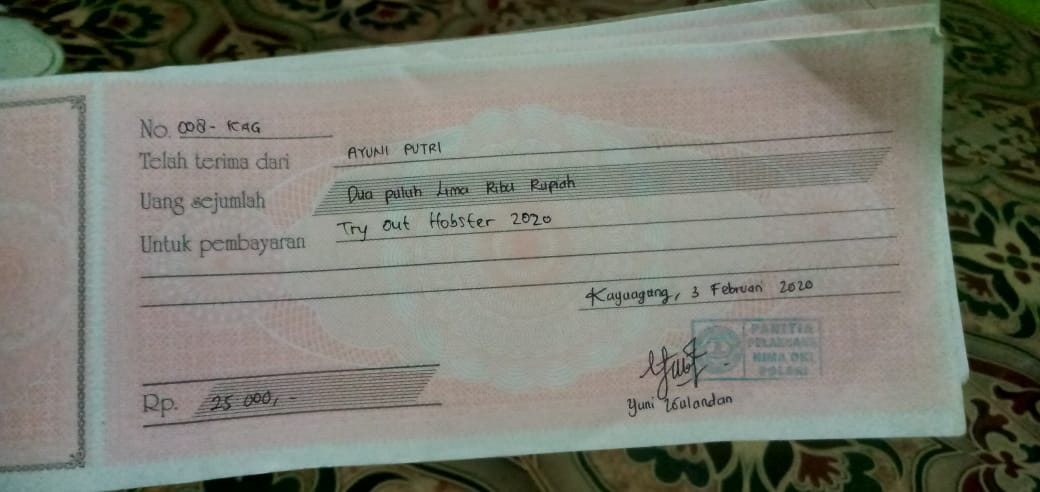 No. 008 - KAG
Telah terima dari AYUNI PUTRI
Uang sejumlah Dua puluh Lima Ribu Rupiah
Untuk pembayaran Try Out Hobster 2020
Kayuagung, 3 Februari 2020
PANITIA
PELAKSANA
HIMA OKI
POLSRI
Rp. 25 000, -
Yuni Wulandari